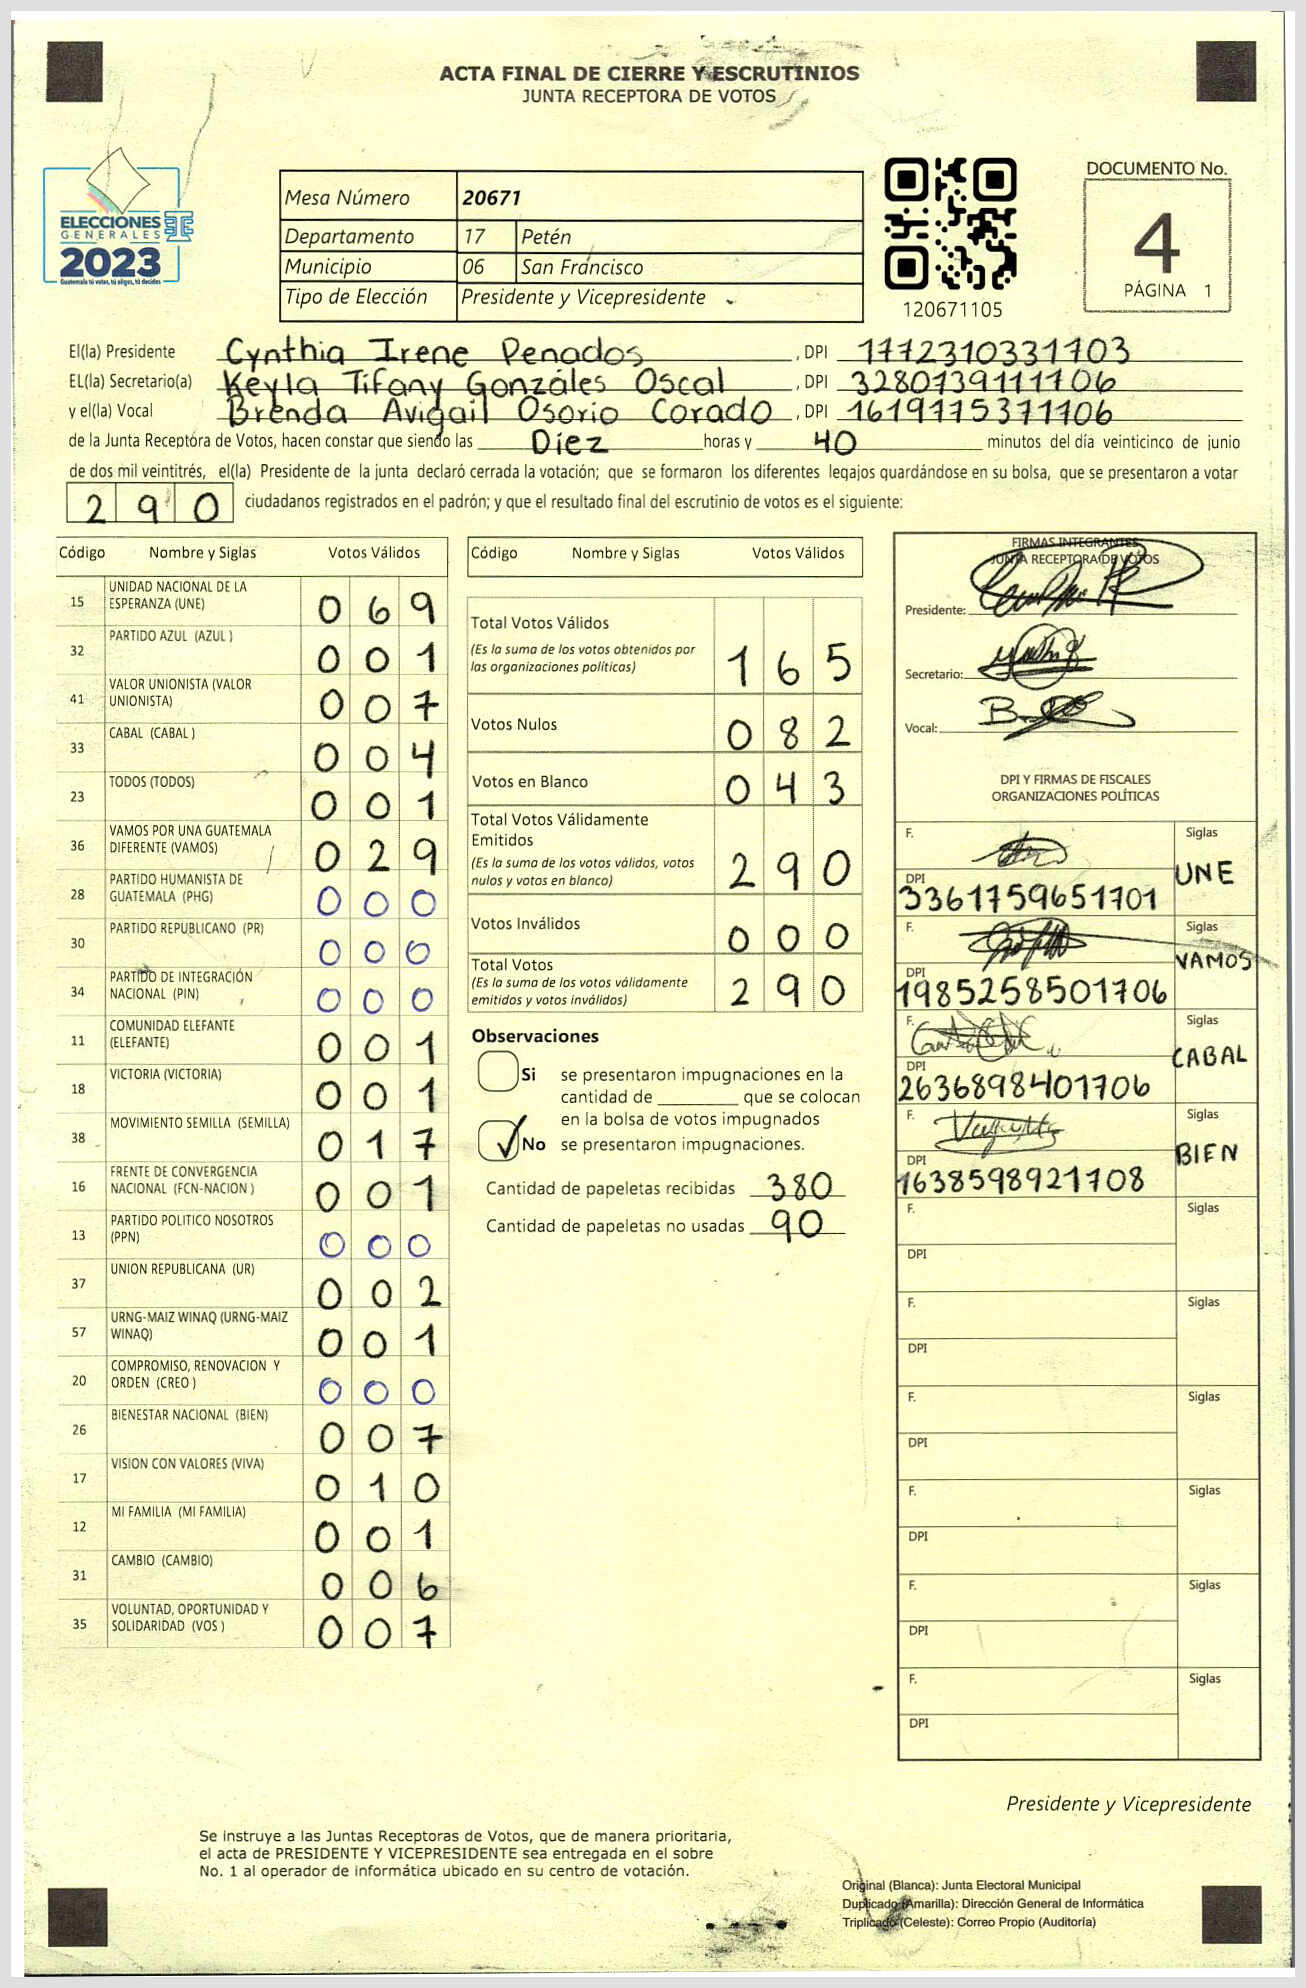 ACTA FINAL DE CIERRE Y ESCRUTINIOS
JUNTA RECEPTORA DE VOTOS
ELECCIONES
GENERALES
2023
Guatemala tú votas, tú eliges, tú decides
Mesa Número 20671
Departamento 17 Petén
Municipio 06 San Francisco
Tipo de Elección Presidente y Vicepresidente
120671105
DOCUMENTO No.
4
PÁGINA 1
El(la) Presidente Cynthia Irene Penados, DPI 1772310331703
EL(la) Secretario(a) Keyla Tifany Gonzáles Oscal, DPI 3280739111706
y el(la) Vocal Brenda Avigail Osorio Corado, DPI 1619775371706
de la Junta Receptora de Votos, hacen constar que siendo las Diez horas y 40 minutos del día veinticinco de junio
de dos mil veintitrés, el(la) Presidente de la junta declaró cerrada la votación; que se formaron los diferentes legajos quardándose en su bolsa, que se presentaron a votar
290 ciudadanos registrados en el padrón; y que el resultado final del escrutinio de votos es el siguiente:
Código Nombre y Siglas Votos Válidos
15 UNIDAD NACIONAL DE LA ESPERANZA (UNE) 069
32 PARTIDO AZUL (AZUL ) 001
41 VALOR UNIONISTA (VALOR UNIONISTA) 007
33 CABAL (CABAL ) 004
23 TODOS (TODOS) 001
36 VAMOS POR UNA GUATEMALA DIFERENTE (VAMOS) 029
28 PARTIDO HUMANISTA DE GUATEMALA (PHG) 000
30 PARTIDO REPUBLICANO (PR) 000
34 PARTIDO DE INTEGRACIÓN NACIONAL (PIN) 000
11 COMUNIDAD ELEFANTE (ELEFANTE) 001
18 VICTORIA (VICTORIA) 001
38 MOVIMIENTO SEMILLA (SEMILLA) 017
16 FRENTE DE CONVERGENCIA NACIONAL (FCN-NACION ) 001
13 PARTIDO POLITICO NOSOTROS (PPN) 000
37 UNION REPUBLICANA (UR) 002
57 URNG-MAIZ WINAQ (URNG-MAIZ WINAQ) 001
20 COMPROMISO, RENOVACION Y ORDEN (CREO ) 000
26 BIENESTAR NACIONAL (BIEN) 007
17 VISION CON VALORES (VIVA) 010
12 MI FAMILIA (MI FAMILIA) 001
31 CAMBIO (CAMBIO) 006
35 VOLUNTAD, OPORTUNIDAD Y SOLIDARIDAD (VOS ) 007
Código Nombre y Siglas Votos Válidos
Total Votos Válidos
(Es la suma de los votos obtenidos por
las organizaciones políticas) 165
Votos Nulos 082
Votos en Blanco 043
Total Votos Válidamente
Emitidos
(Es la suma de los votos válidos, votos
nulos y votos en blanco) 290
Votos Inválidos 000
Total Votos
(Es la suma de los votos válidamente
emitidos y votos inválidos) 290
Observaciones
Si se presentaron impugnaciones en la
cantidad de ________ que se colocan
en la bolsa de votos impugnados
✓ No se presentaron impugnaciones.
Cantidad de papeletas recibidas 380
Cantidad de papeletas no usadas 90
FIRMAS INTEGRANTES
JUNTA RECEPTORA DE VOTOS
Presidente:
Secretario:
Vocal:
DPI Y FIRMAS DE FISCALES
ORGANIZACIONES POLÍTICAS
F. Siglas
UNE
DPI
3361759651701
F. Siglas
VAMOS
DPI
1985258501706
F. Siglas
CABAL
DPI
2636898401706
F. Siglas
BIEN
DPI
1638598921708
F. Siglas
DPI
F. Siglas
DPI
F. Siglas
DPI
F. Siglas
DPI
F. Siglas
DPI
F. Siglas
DPI
Presidente y Vicepresidente
Se instruye a las Juntas Receptoras de Votos, que de manera prioritaria,
el acta de PRESIDENTE Y VICEPRESIDENTE sea entregada en el sobre
No. 1 al operador de informática ubicado en su centro de votación.
Original (Blanca): Junta Electoral Municipal
Duplicado (Amarilla): Dirección General de Informática
Triplicado (Celeste): Correo Propio (Auditoría)